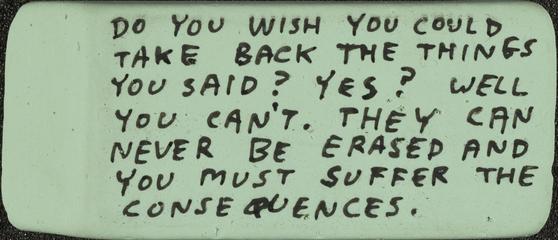 DO YOU WISH YOU COULD
TAKE BACK THE THINGS
YOU SAID? YES? WELL
YOU CAN'T. THEY CAN
NEVER BE ERASED AND
YOU MUST SUFFER THE
CONSEQUENCES.